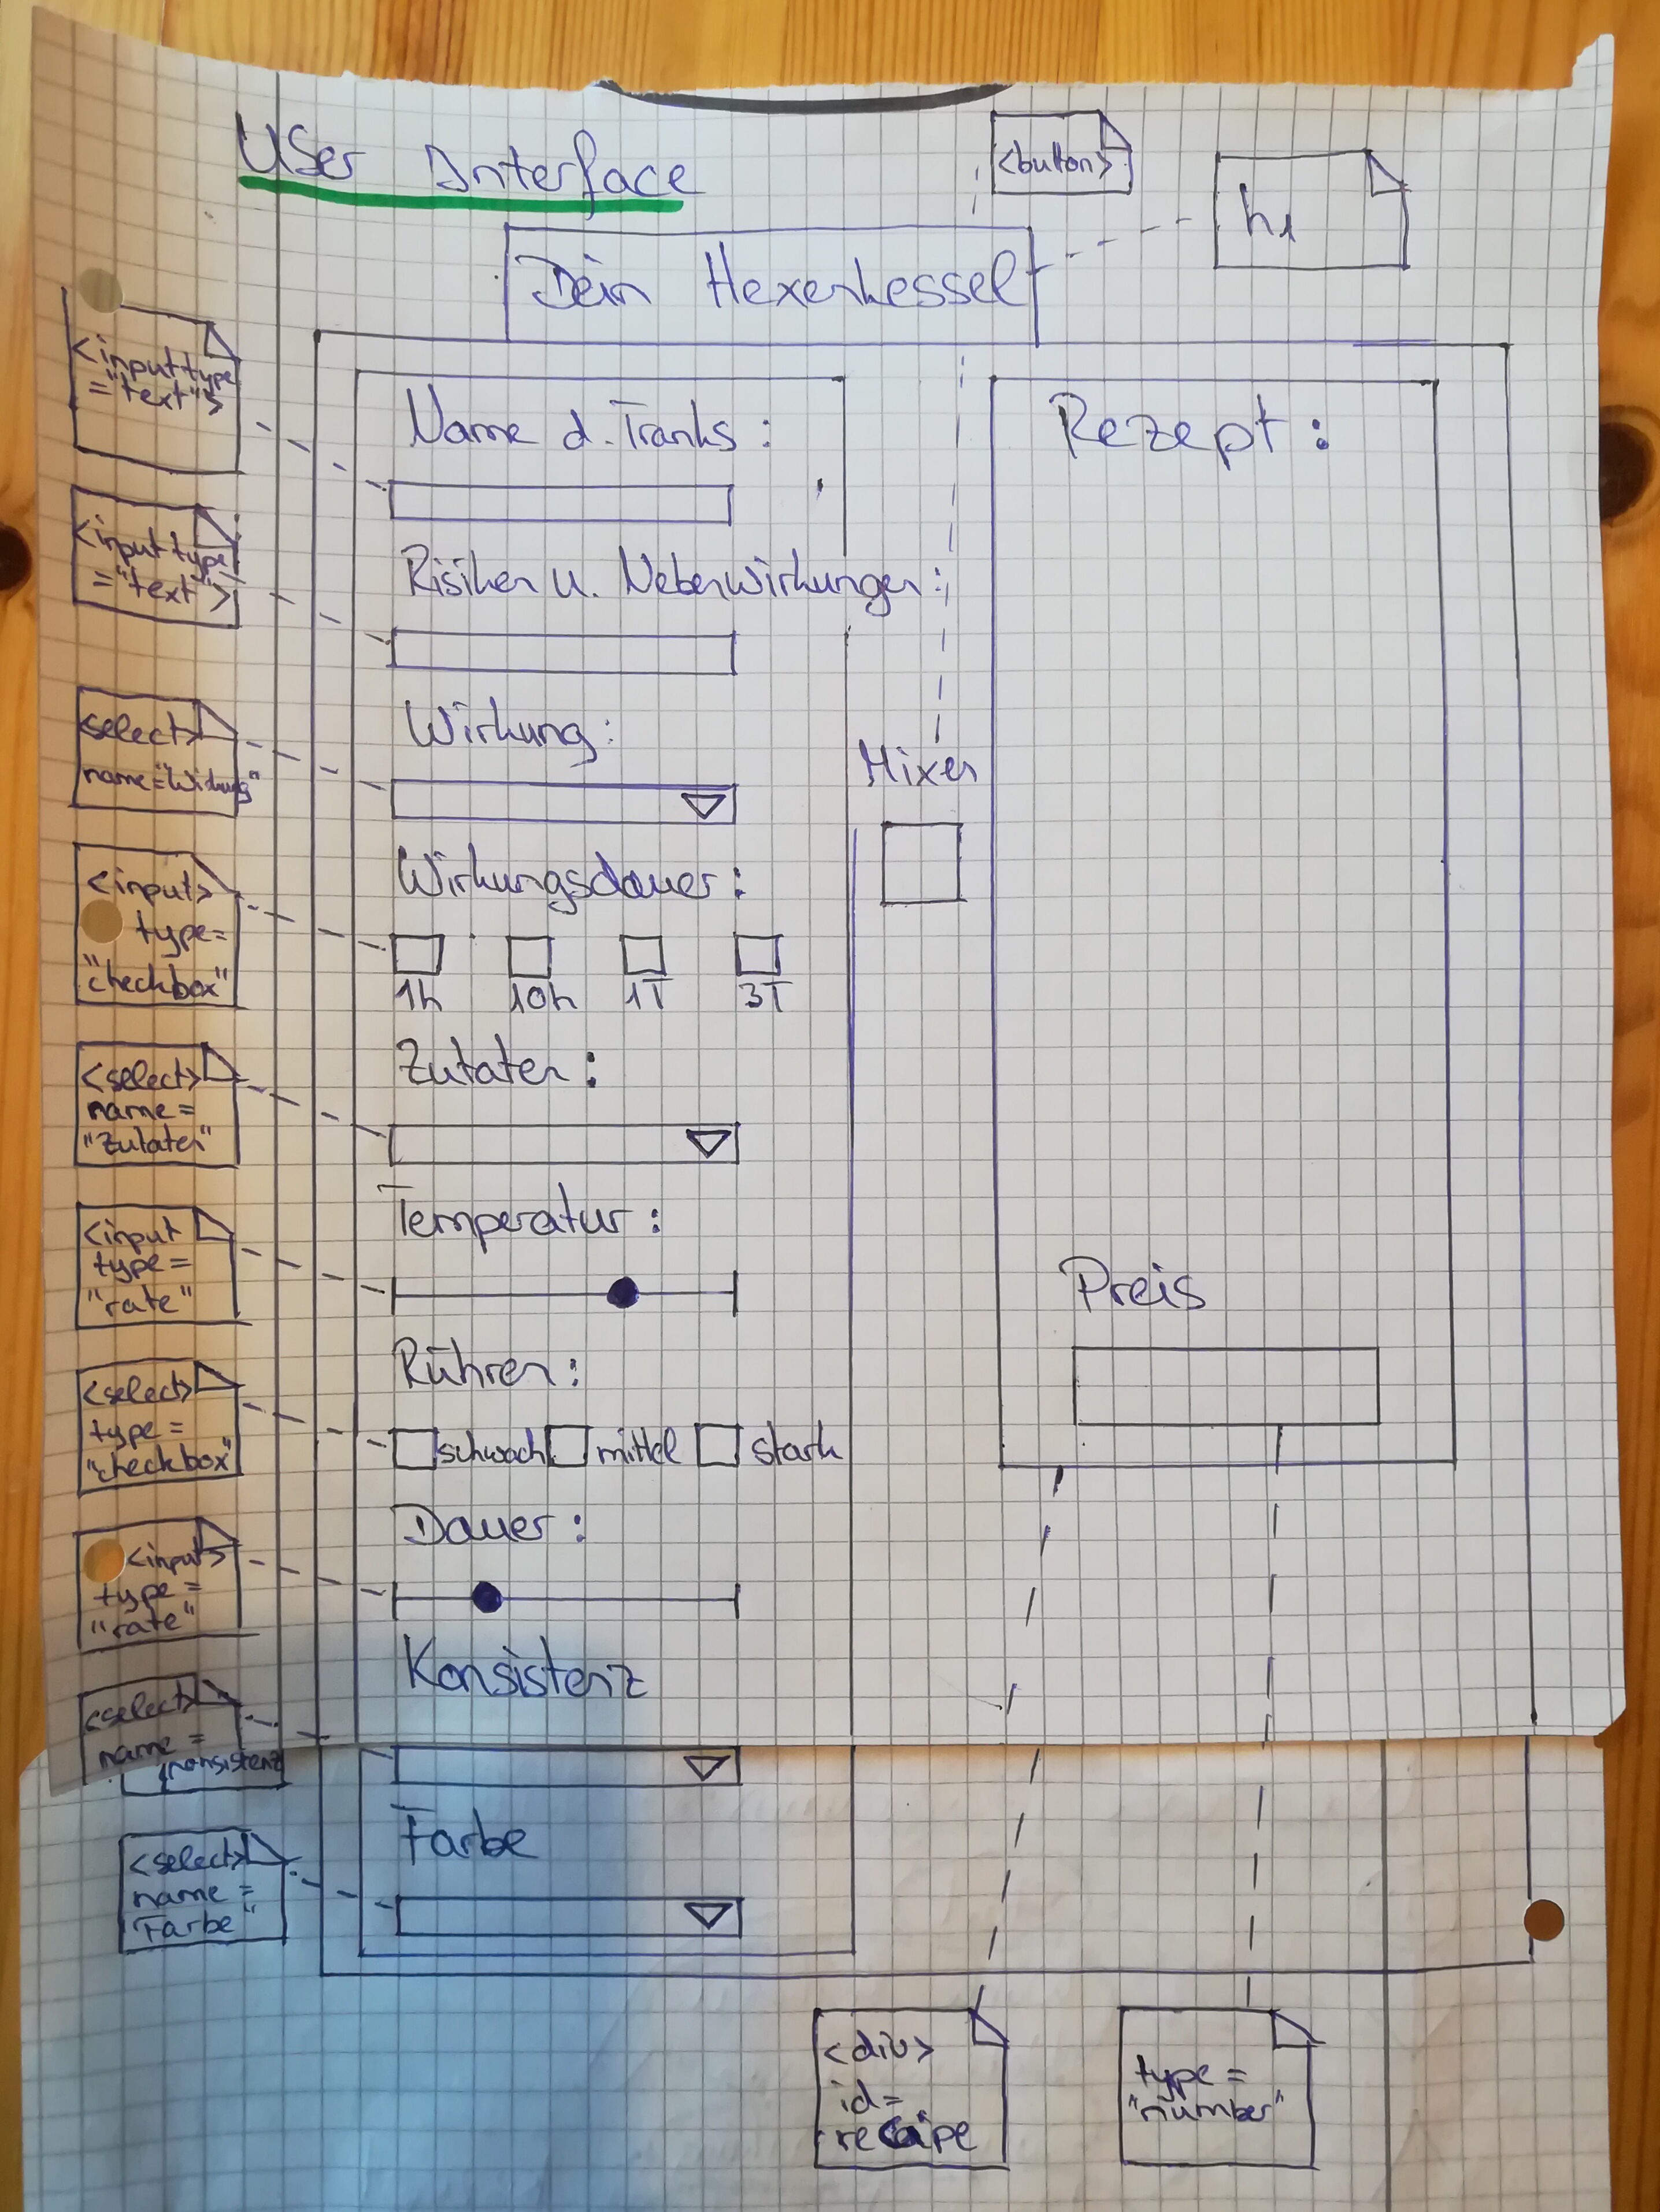 User Interface
<button>
h1
Dein Hexenkessel
<input type
="text">
Name d. Tranks:
Rezept:
<input type
="text">
Risiken u. Nebenwirkungen:
select>
name="Wirkung"
Wirkung:
Mixen
<input>
type=
"checkbox"
Wirkungsdauer:
1h 10h 1T 3T
<select>
name=
"Zutaten"
Zutaten:
<input
type=
"rate"
Temperatur:
Preis
<select>
type=
"checkbox"
Rühren:
schwach mittel stark
<input>
type=
"rate"
Dauer:
<select>
name=
Konsistenz
Konsistenz
<select>
name=
"Farbe"
Farbe
<div>
id=
recipe
type=
"number"